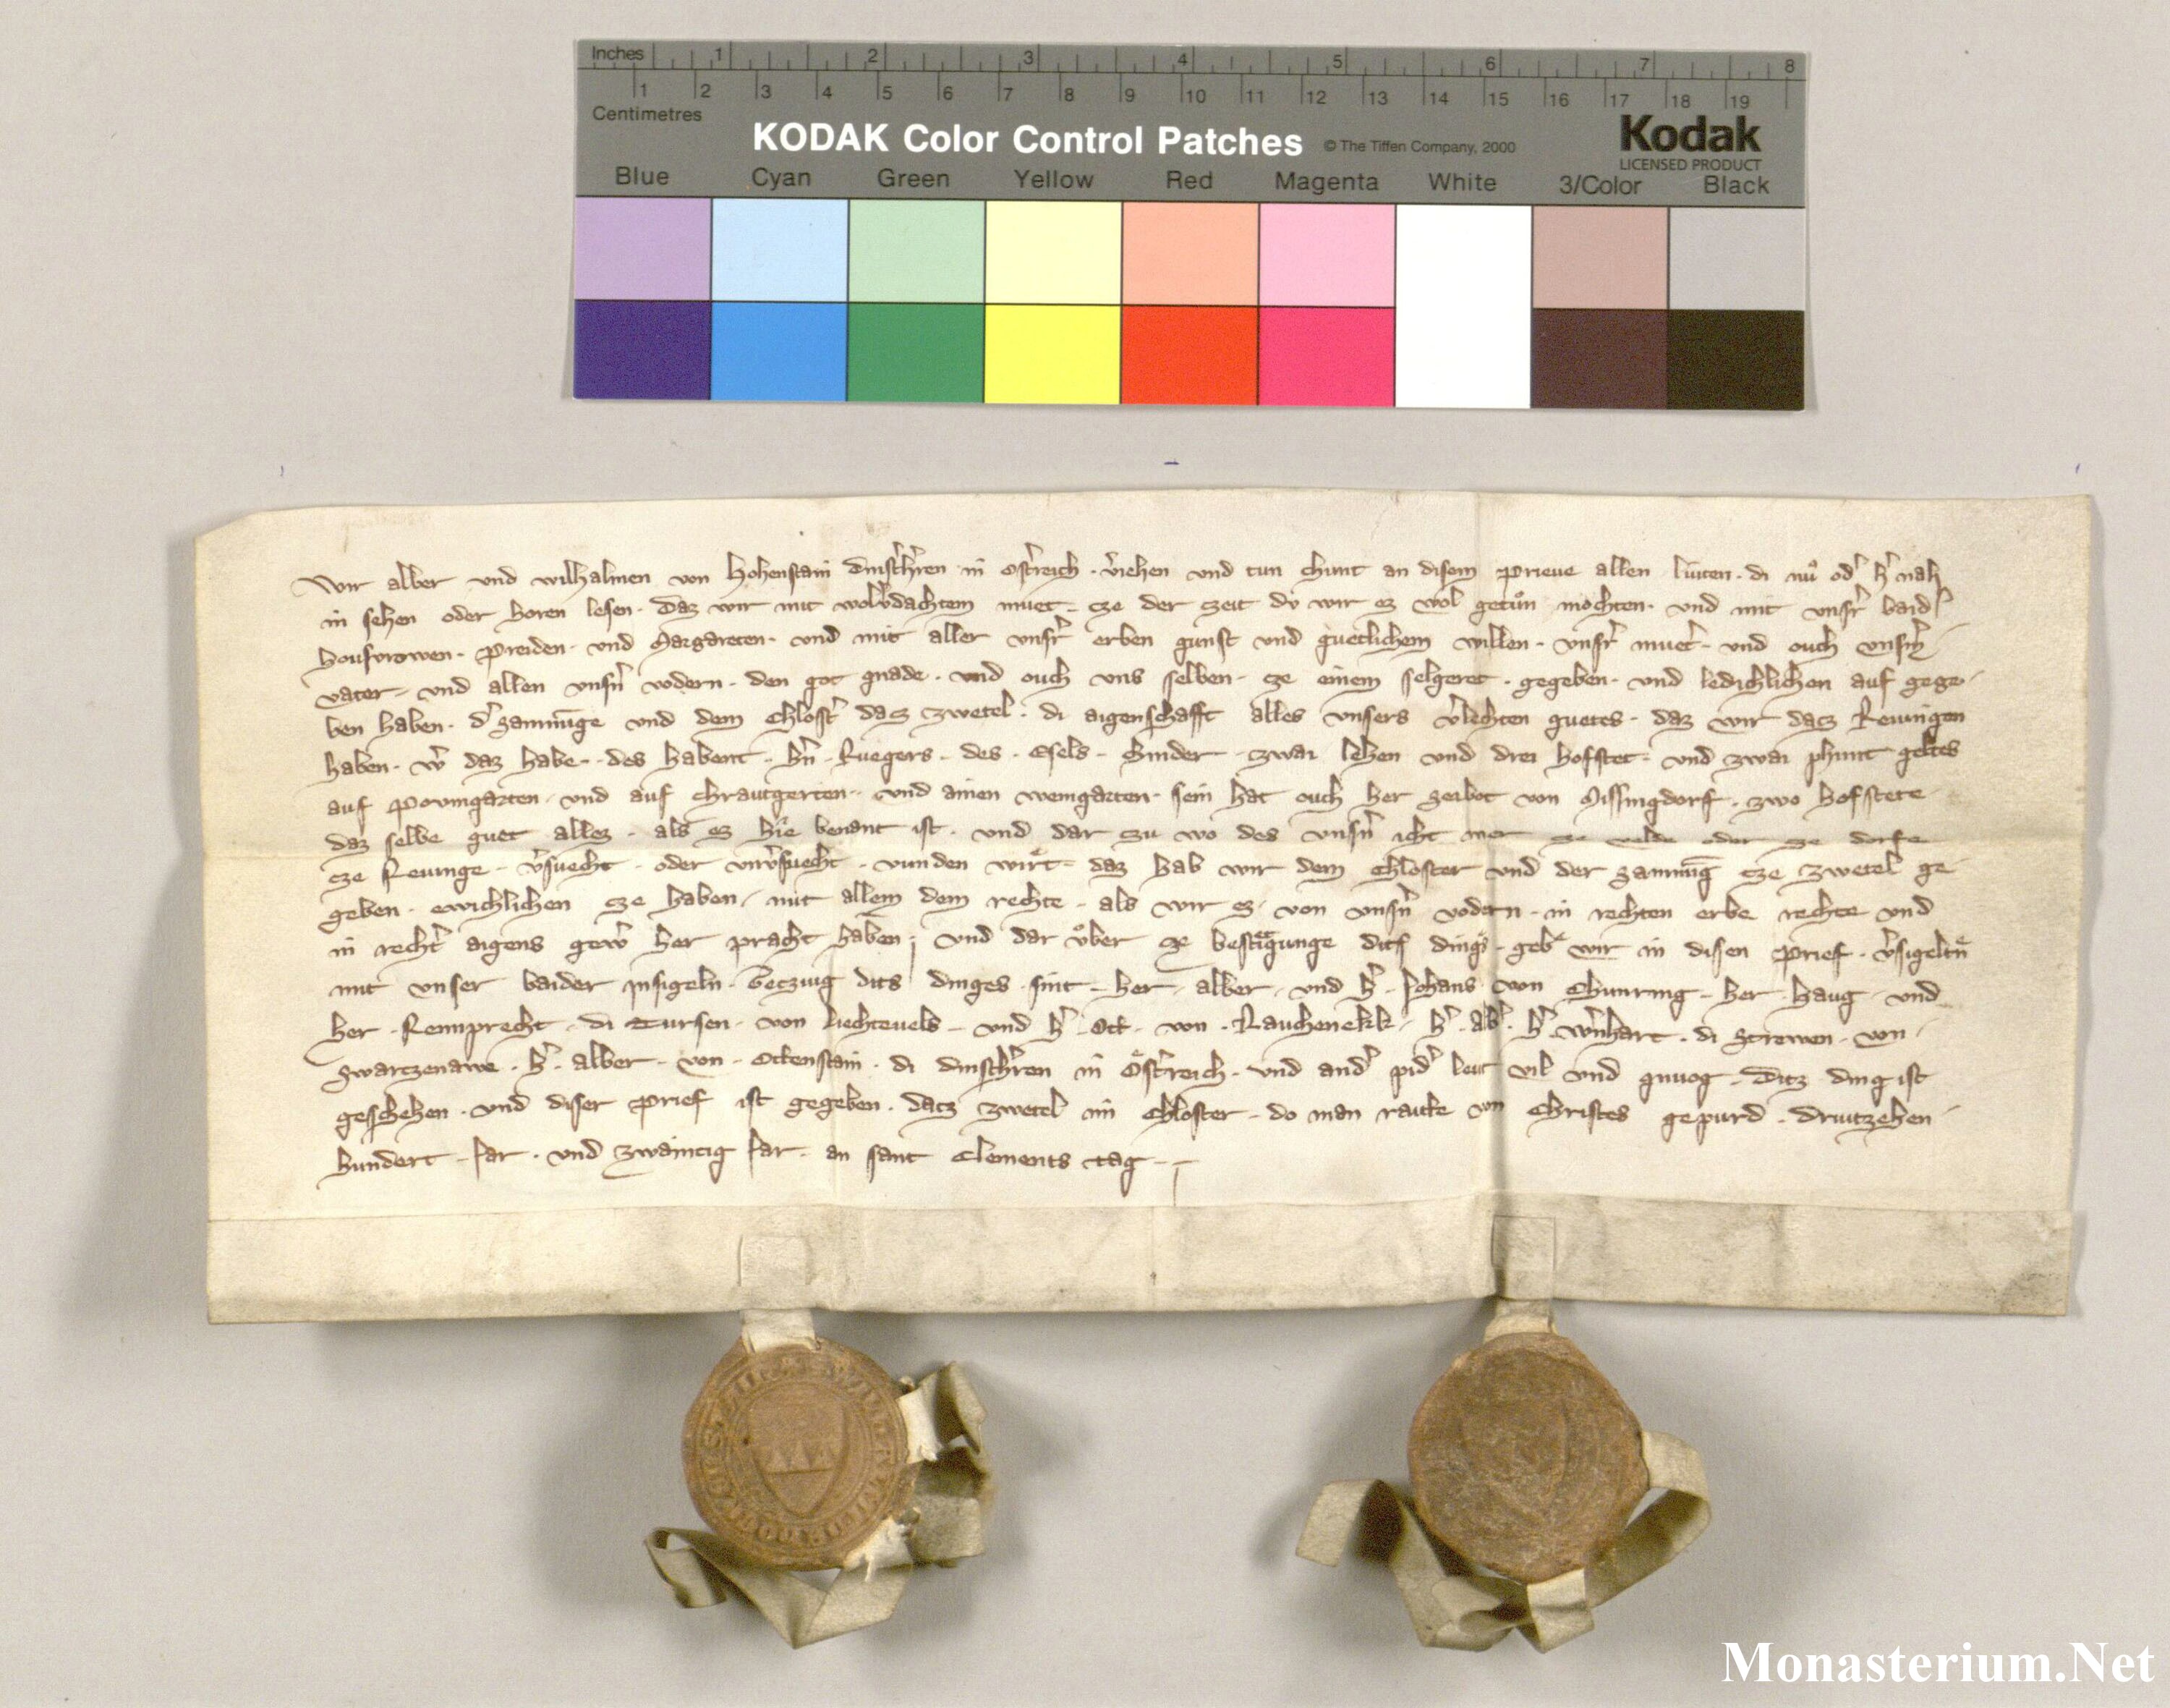 Inches 1 2 3 4 5 6 7 8
1 2 3 4 5 6 7 8 9 10 11 12 13 14 15 16 17 18 19
Centimetres
KODAK Color Control Patches © The Tiffen Company, 2000 Kodak
LICENSED PRODUCT
Blue Cyan Green Yellow Red Magenta White 3/Color Black
Wir alber und wilhalmen von Hohenstain dinsth̾ren in ostr̾eich · v̾iehen und tun chunt an disem prieue allen luiten · di nuͦ od̾ h̾ nah
in sehen oder horen lesen · daz wir mit wolv̾dachtem muet · cze der czeit dv wir ez wol getuͦn mochten · und mit unsr̾ baid̾
housvrowen · preiden · und Margareten · und mit aller unsr̾ erben gunst und guetlichem willen · unsr̾ muet̾ · und ouch unsr̾s
vater · und allen unsn̾ vodern · den got gnade · und ouch uns selben · ze einem selgeret · gegeben · und ledichlichen auf gege
ben haben · d̾ samnu̅ge und dem chlost̾ daz zwetel · di aigenschafft alles unsers v̾lechten guetes · daz wir dacz Reuingen
haben · w̾ daz habe · des habent · h̾n · Ruegers · des · Esels · Chinder · zwai lehen und drei hofstet · und zwai phunt geltes
auf poumgarten · und auf chrautgerten · und ainen weingarten · sein hat ouch her seibot von Missingdorf · zwo hofstete
daz selbe guet allez · als ez hie benant ist · und dar zu wo des unsn̾ icht mer ze velde oder ze dorfe
cze Reuinge · v̾suecht · oder unv̾suecht · vunden wirt · daz hab wir dem chloster und der samnu̅g cze zwetel ge
geben · ewichlichen cze haben · mit allem dem rechte · als wir ez von unsn̾ vodern · in rechten erbe rechte und
in recht̾ aigens gew̾ her pracht haben · und dar uͦber ze bestaͤtigunge dits dings · geb wir in disen prief · v̾sigeltn̾
mit unser baider insigeln · Geczuig dits dinges sint · her · alber · und h̾ · Johans von Chunring · her · haug · und
her · Reinprecht · di Tursen · von liechtevels · und h̾ · Ott · von · Rauchenekk · h̾ · alb̾ · h̾ · w̾nhart · di Strewen · von
Swartzenawe · h̾ · alber · von · Ottenstain · di dinsth̾ren in Oͤstr̾reich · und and̾ pid̾ leut vil und gnuog · Ditz ding ist
geschehen · und diser prief ist gegeben · dacz zwetel im chloster · do man raitte von Christes gepurd · Druitzehen
hundert · Jar · und zwaincig Jar · an sant Clements tag
Monasterium.Net